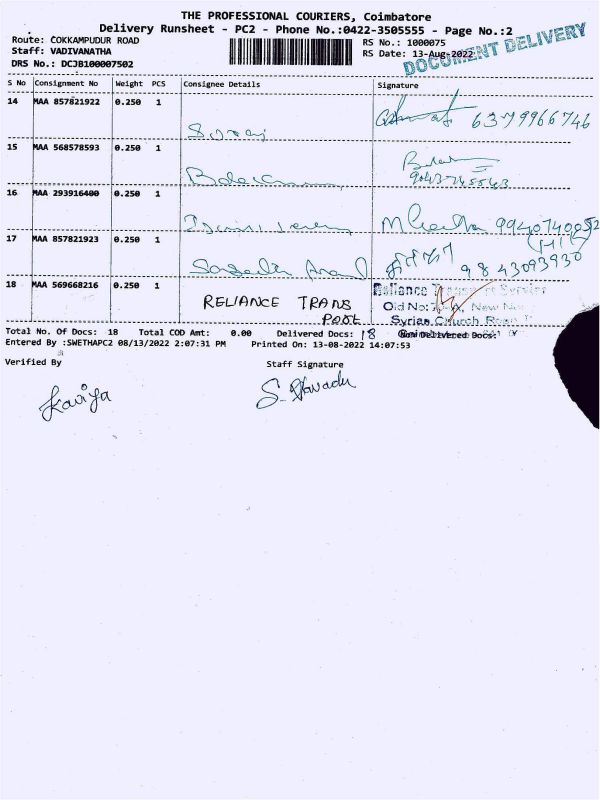 THE PROFESSIONAL COURIERS, Coimbatore
Delivery Runsheet - PC2 - Phone No.:0422-3505555 - Page No.:2
Route: COKKAMPUDUR ROAD
RS No.: 1000075
Staff: VADIVANATHA
RS Date: 13-Aug-2022
DOCUMENT DELIVERY
DRS No.: DCJB100007502
S No Consignment No Weight PCS Consignee Details Signature
14 MAA 857821922 0.250 1
6379966746
15 MAA 568578593 0.250 1
16 MAA 293916400 0.250 1
17 MAA 857821923 0.250 1
9843093930
18 MAA 569668216 0.250 1 RELIANCE TRANS
Reliance
Old No: New
Syrian Church Road
Total No. Of Docs: 18 Total COD Amt: 0.00 Delivered Docs: 18 Non Delivered Docs:
Entered By :SWETHAPC2 08/13/2022 2:07:31 PM Printed On: 13-08-2022 14:07:53
Verified By Staff Signature
Kaviya